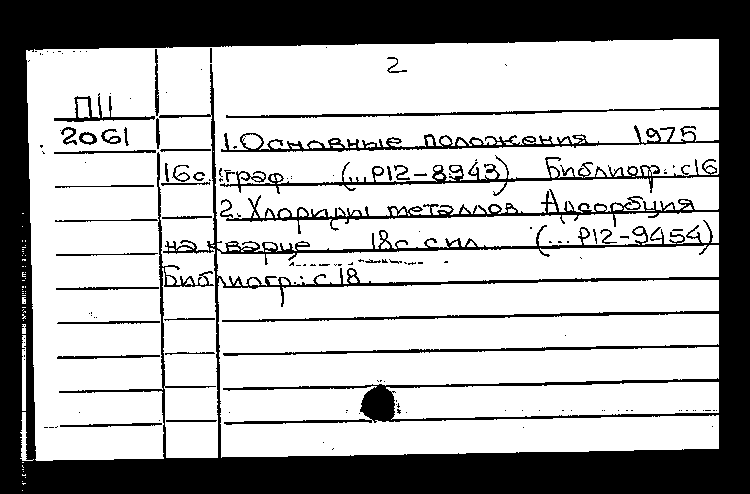 2
П11
2061
1. Основные положения 1975
16с. граф. (...P12-8943) Библиогр.: с16
2. Хлориды металлов. Адсорбция
на кварце. 18с. с ил. (...P12-9454)
Библиогр.: с.18.